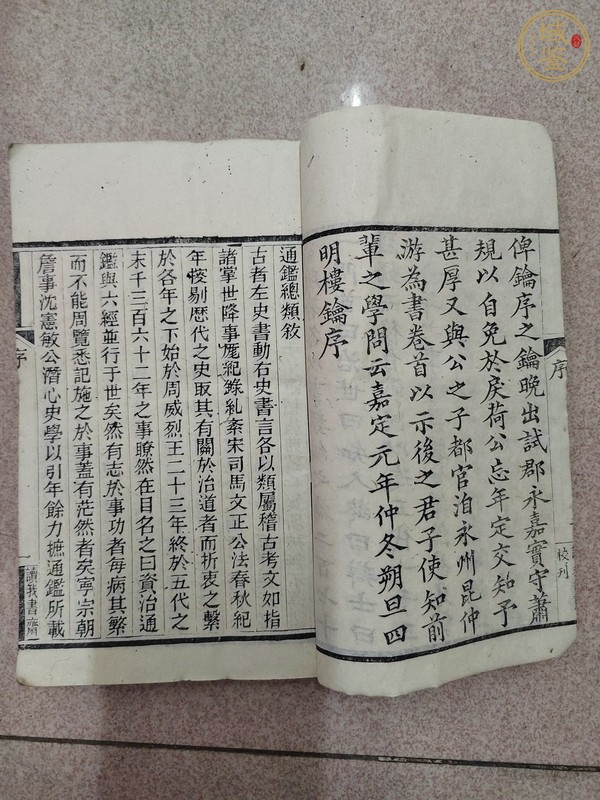 俾鑰序之鑰晚出試郡永嘉實守蕭
規以自免於戾荷公忘年定交知予
甚厚又與公之子都官洎永州昆仲
游為書卷首以示後之君子使知前
輩之學問云嘉定元年仲冬朔旦四
明樓鑰序
序
校刋
通鑑總類敘
古者左史書動右史書言各以類屬稽古考文如指
諸掌世降事厖紀錄糺紊宋司馬文正公法春秋紀
年恔剔歷代之史取其有關於治道者而析衷之繫
於各年之下始於周威烈王二十三年終於五代之
末千三百六十二年之事瞭然在目名之曰資治通
鑑與六經並行于世矣然有志於事功者每病其繁
而不能周覽悉記施之於事蓋有茫然者矣寧宗朝
詹事沈憲敏公潛心史學以引年餘力摭通鑑所載
序
讀我書齋